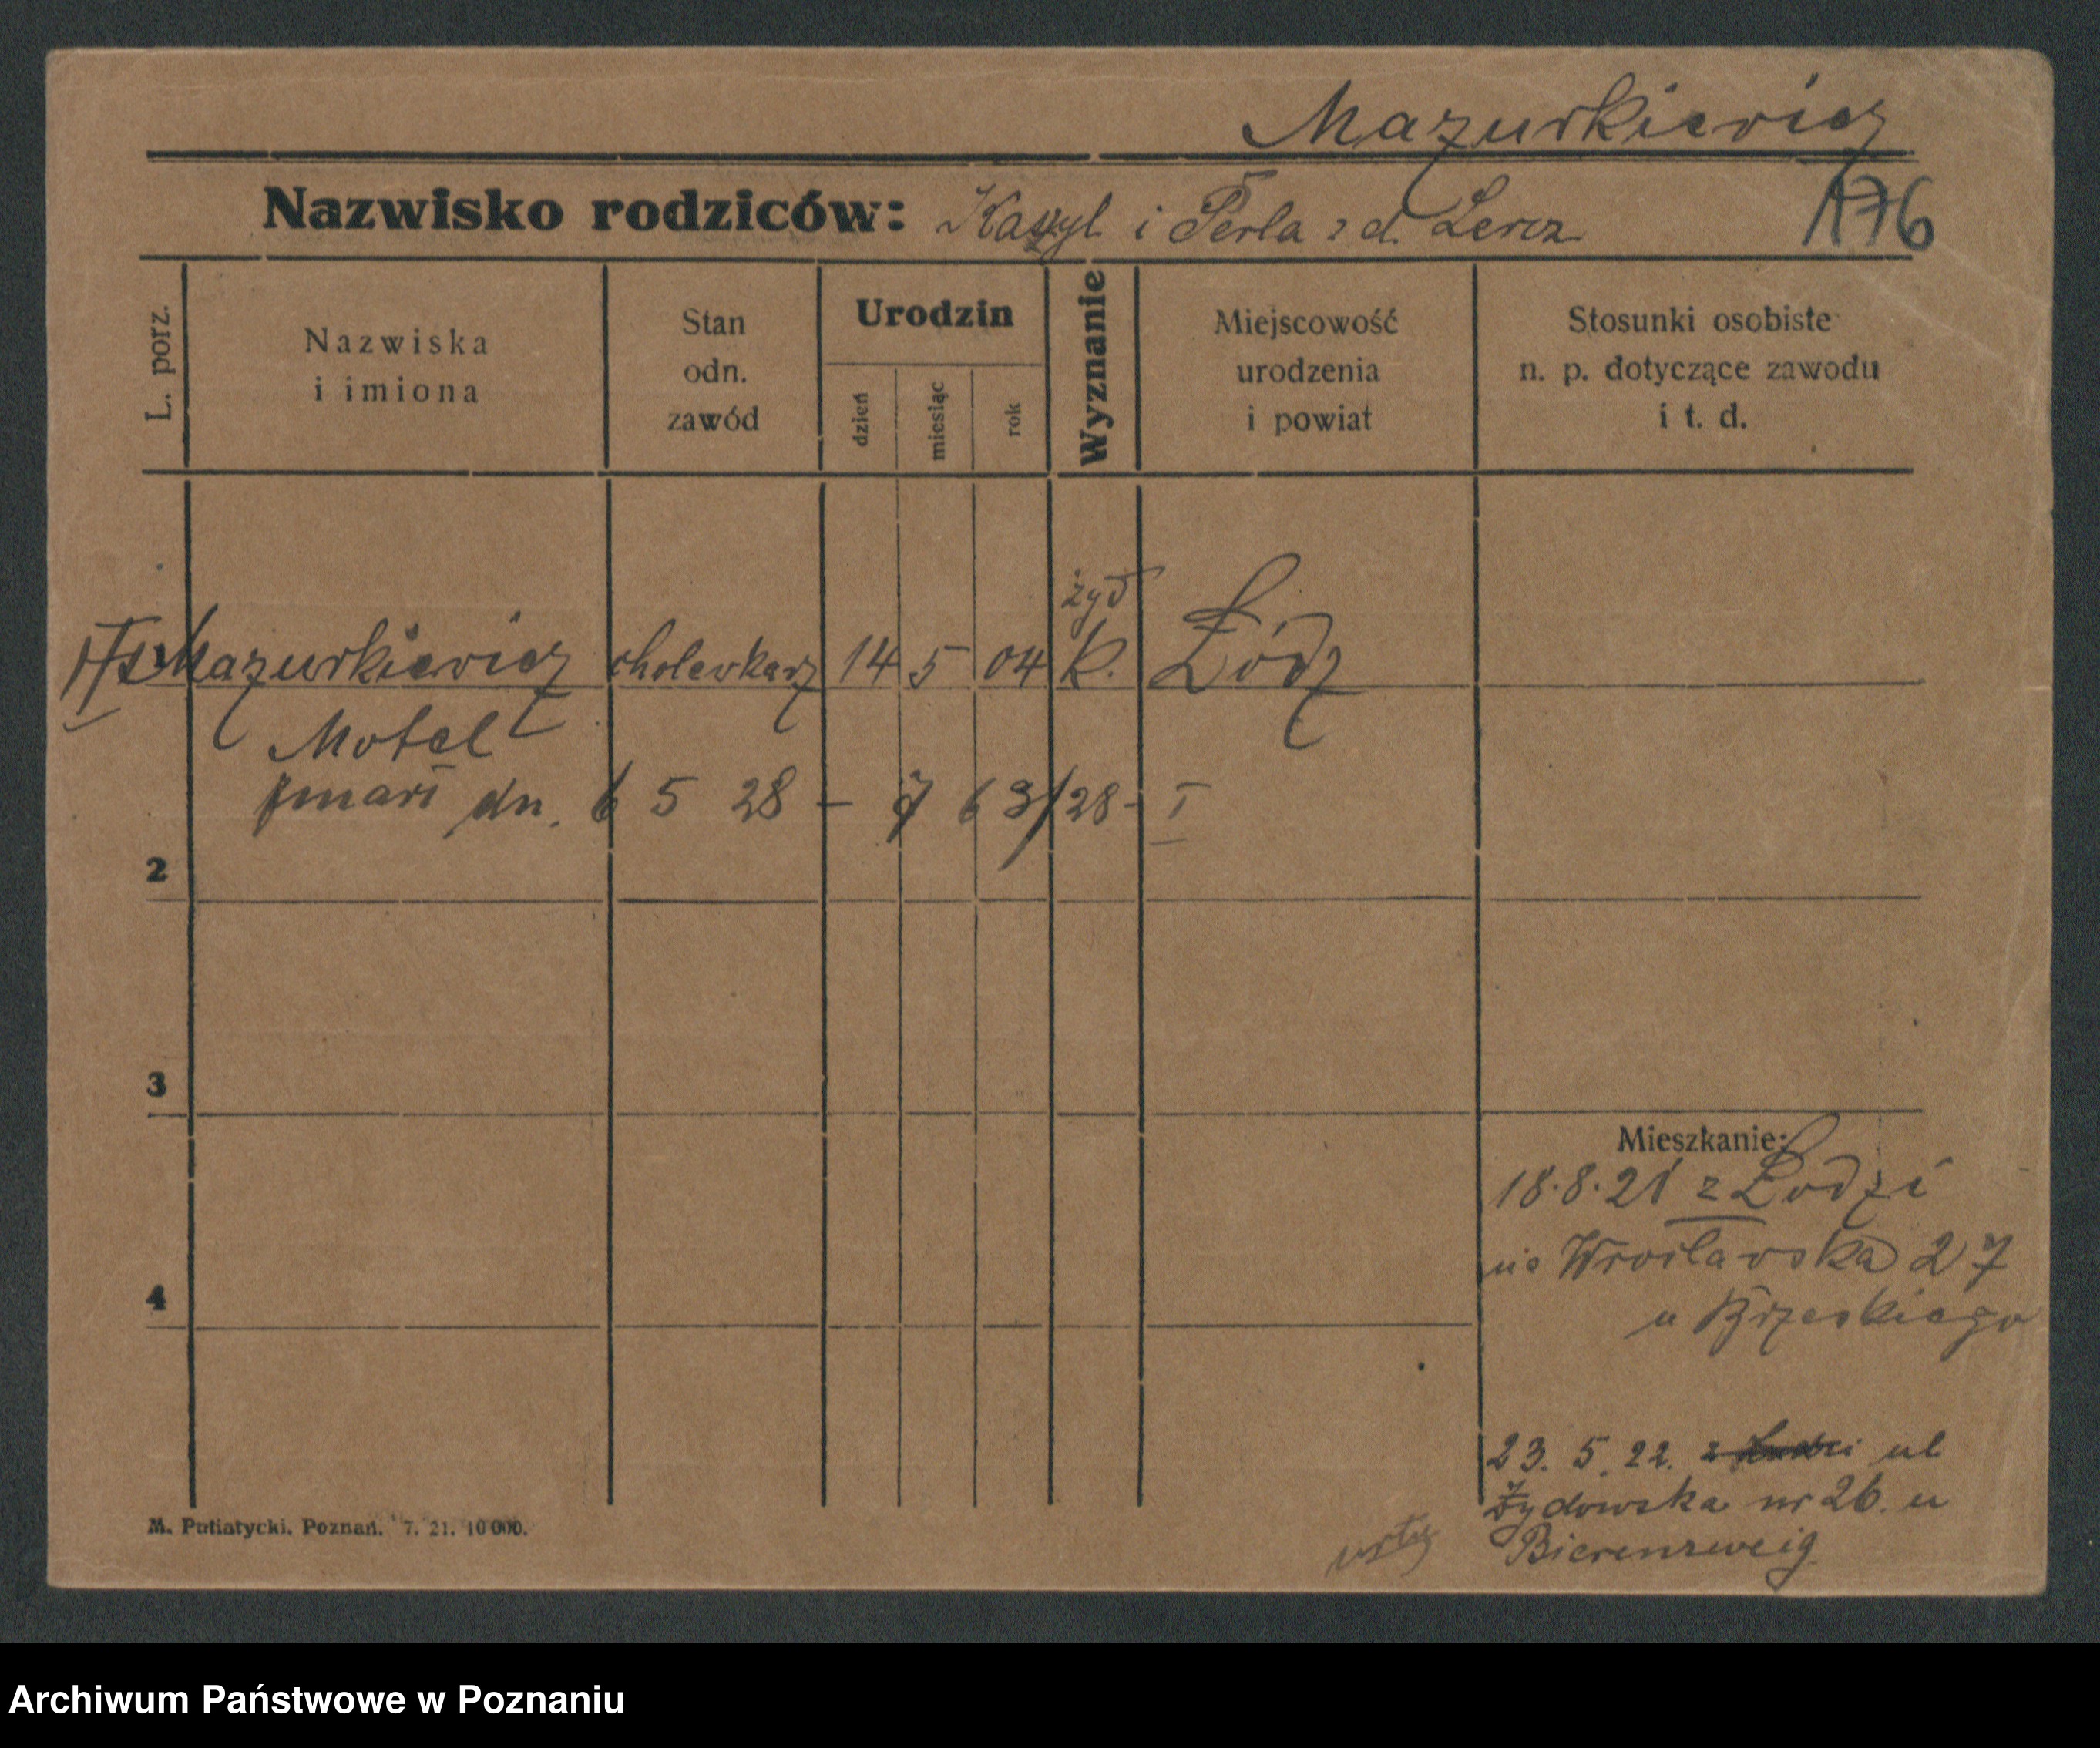 Mazurkiewicz
Nazwisko rodziców: i Perla z d. Lercz
176
L. porz.
Nazwiska
i imiona
Stan
odn.
zawód
Urodzin
dzień
miesiąc
rok
Wyznanie
Miejscowość
urodzenia
i powiat
Stosunki osobiste
n. p. dotyczące zawodu
i t. d.
żyd
Mazurkiewicz cholewkarz 14 5 04 K. Łódz
Motel
zmarł dn. 6 5 28 – 28 - I
2
3
4
Mieszkanie:
18.8.21 z Łodzi
na Wrocławska 27
u Brzeskiego
23. 5. 22. z ul
Żydowska nr 26. u
Bierenzweig
M. Putiatycki. Poznań. 7. 21. 10 000.
Archiwum Państwowe w Poznaniu